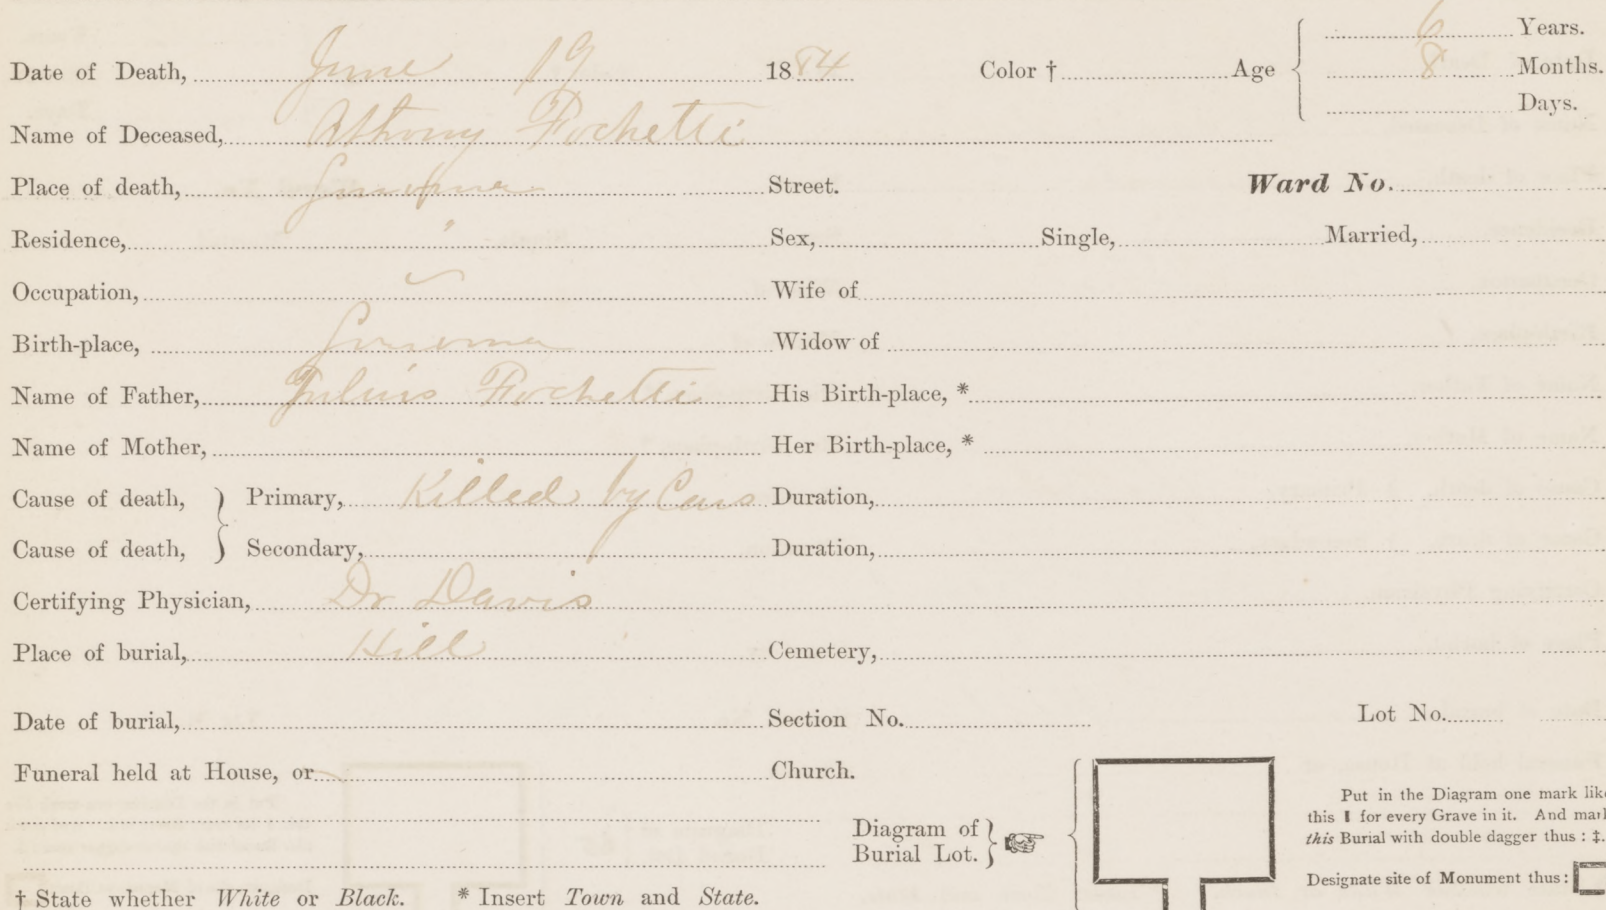 6 Years.
Date of Death, June 19 1884 Color † Age 8 Months.
Days.
Name of Deceased, Athony Fochetti
Place of death, Sonoma Street. Ward No.
Residence, " Sex, Single, Married,
Occupation, Wife of
Birth-place, Sonoma Widow of
Name of Father, Julius Fochetti His Birth-place, *
Name of Mother, Her Birth-place, *
Cause of death, } Primary, Killed by Cars Duration,
Cause of death, } Secondary, Duration,
Certifying Physician, Dr Davis
Place of burial, Hill Cemetery,
Date of burial, Section No. Lot No.
Funeral held at House, or Church.
Put in the Diagram one mark lik
this ▮ for every Grave in it. And mar
this Burial with double dagger thus : ‡.
Diagram of
Burial Lot.
Designate site of Monument thus :
† State whether White or Black. * Insert Town and State.